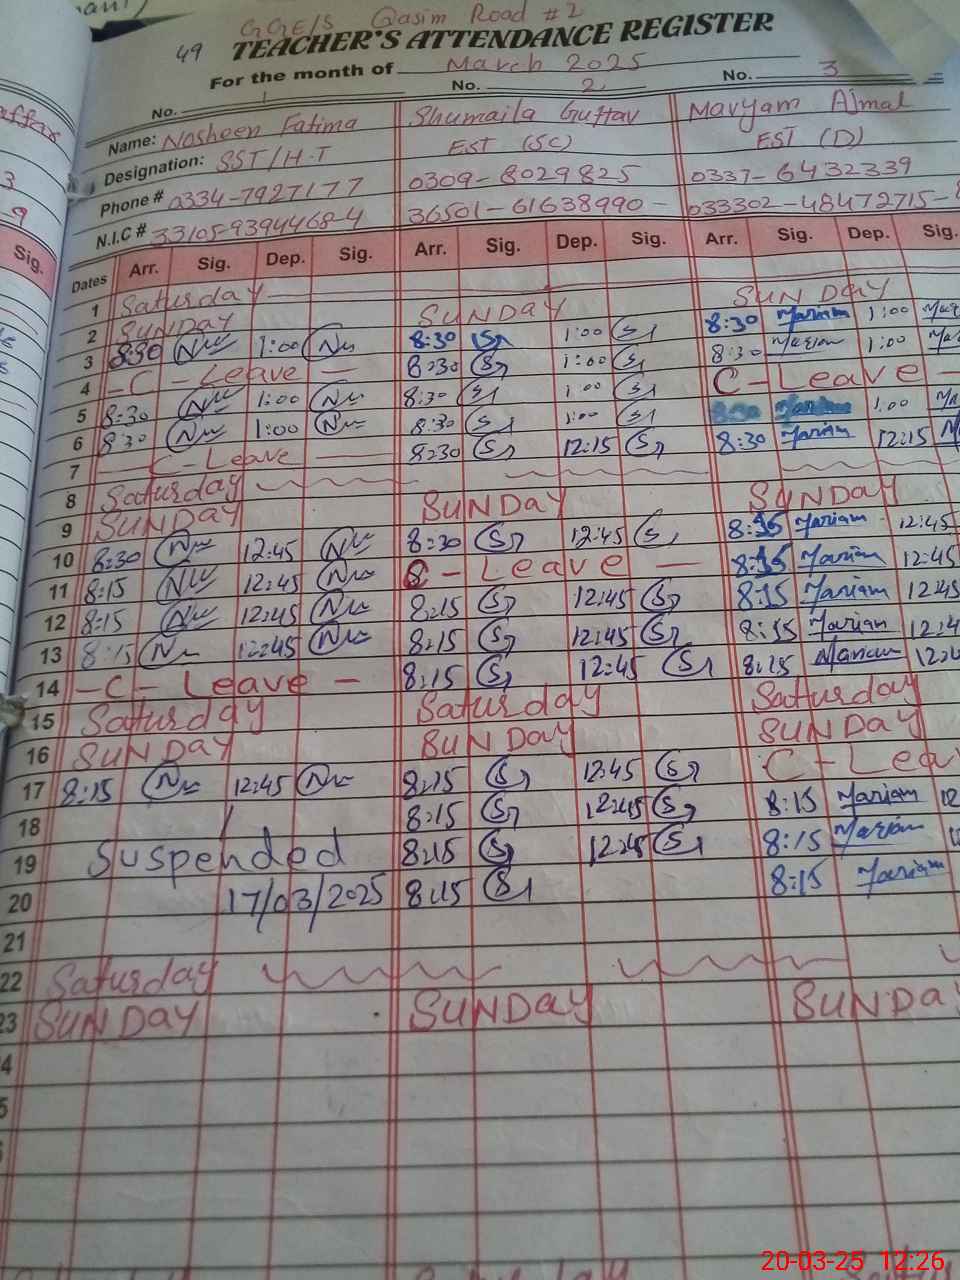 GGE/S Qasim Road #2
49 TEACHER'S ATTENDANCE REGISTER
For the month of March 2025
No. 1 No. 2 No. 3
Name: Nosheen Fatima Shumaila Guftar Maryam Ajmal
Designation: SST/H.T EST (SC) EST (D)
Phone # 0334-7927177 0309-8029825 0337-6432339
N.I.C # 33105-9394468-4 36501-61638990- 033302-48472715-
Dates Arr. Sig. Dep. Sig. Arr. Sig. Dep. Sig. Arr. Sig. Dep. Sig.
1 Saturday
2 SUNDAY SUNDAY SUNDAY
3 8:30 1:00 8:30 1:00 8:30 Mariam 1:00
4 -C-Leave- 8:30 1:00 8:30 Mariam 1:00
5 8:30 1:00 8:30 1:00 C-Leave-
6 8:30 1:00 8:30 1:00 8:30 Mariam 1:00
7 C-Leave 8:30 12:15 8:30 Mariam 12:15
8 Saturday
9 SUNDAY SUNDAY SUNDAY
10 8:30 12:45 8:30 12:45 Mariam 12:45
11 8:15 12:45 C-Leave- Mariam 12:45
12 8:15 12:45 8:15 12:45 8:15 Mariam 12:45
13 8:15 12:45 8:15 12:45 8:15 Mariam
14 -C-Leave- 8:15 12:45 8:15 Mariam
15 Saturday Saturday Saturday
16 SUNDAY SUNDAY SUNDAY
17 8:15 12:45 8:15 12:45 C-Lea
18 8:15 12:45 8:15 Mariam
19 Suspended 8:15 12:45 8:15 Mariam
20 17/03/2025 8:15 8:15 Mariam
21
22 Saturday
23 SUNDAY SUNDAY SUNDAY
20-03-25 12:26